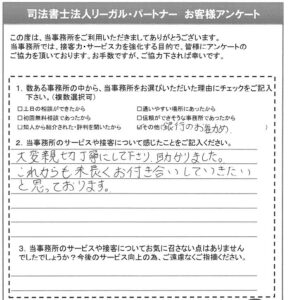 司法書士法人リーガル・パートナー お客様アンケート
この度は、当事務所をご利用いただきましてありがとうございます。
当事務所では、接客力・サービス力を強化する目的で、皆様にアンケートの
ご協力を頂いております。お手数ですが、ご協力下されば幸いです。
1. 数ある事務所の中から、当事務所をお選びいただいた理由にチェックをご記入
下さい。(複数選択可)
□土日の相談ができたから □通いやすい場所にあったから
□初回無料相談であったから □信頼ができそうな事務所であったから
□知人から紹介された・評判を聞いたから ☑その他(銀行のお薦め)
2. 当事務所のサービスや接客について感じたことをご記入ください。
大変親切丁寧にして下さり、助かりました。
これからも末長くお付き合いしていきたい
と思っております。
3. 当事務所のサービスや接客についてお気に召さない点はありません
でしたでしょうか？今後のサービス向上の為、ご遠慮なくご指摘ください。